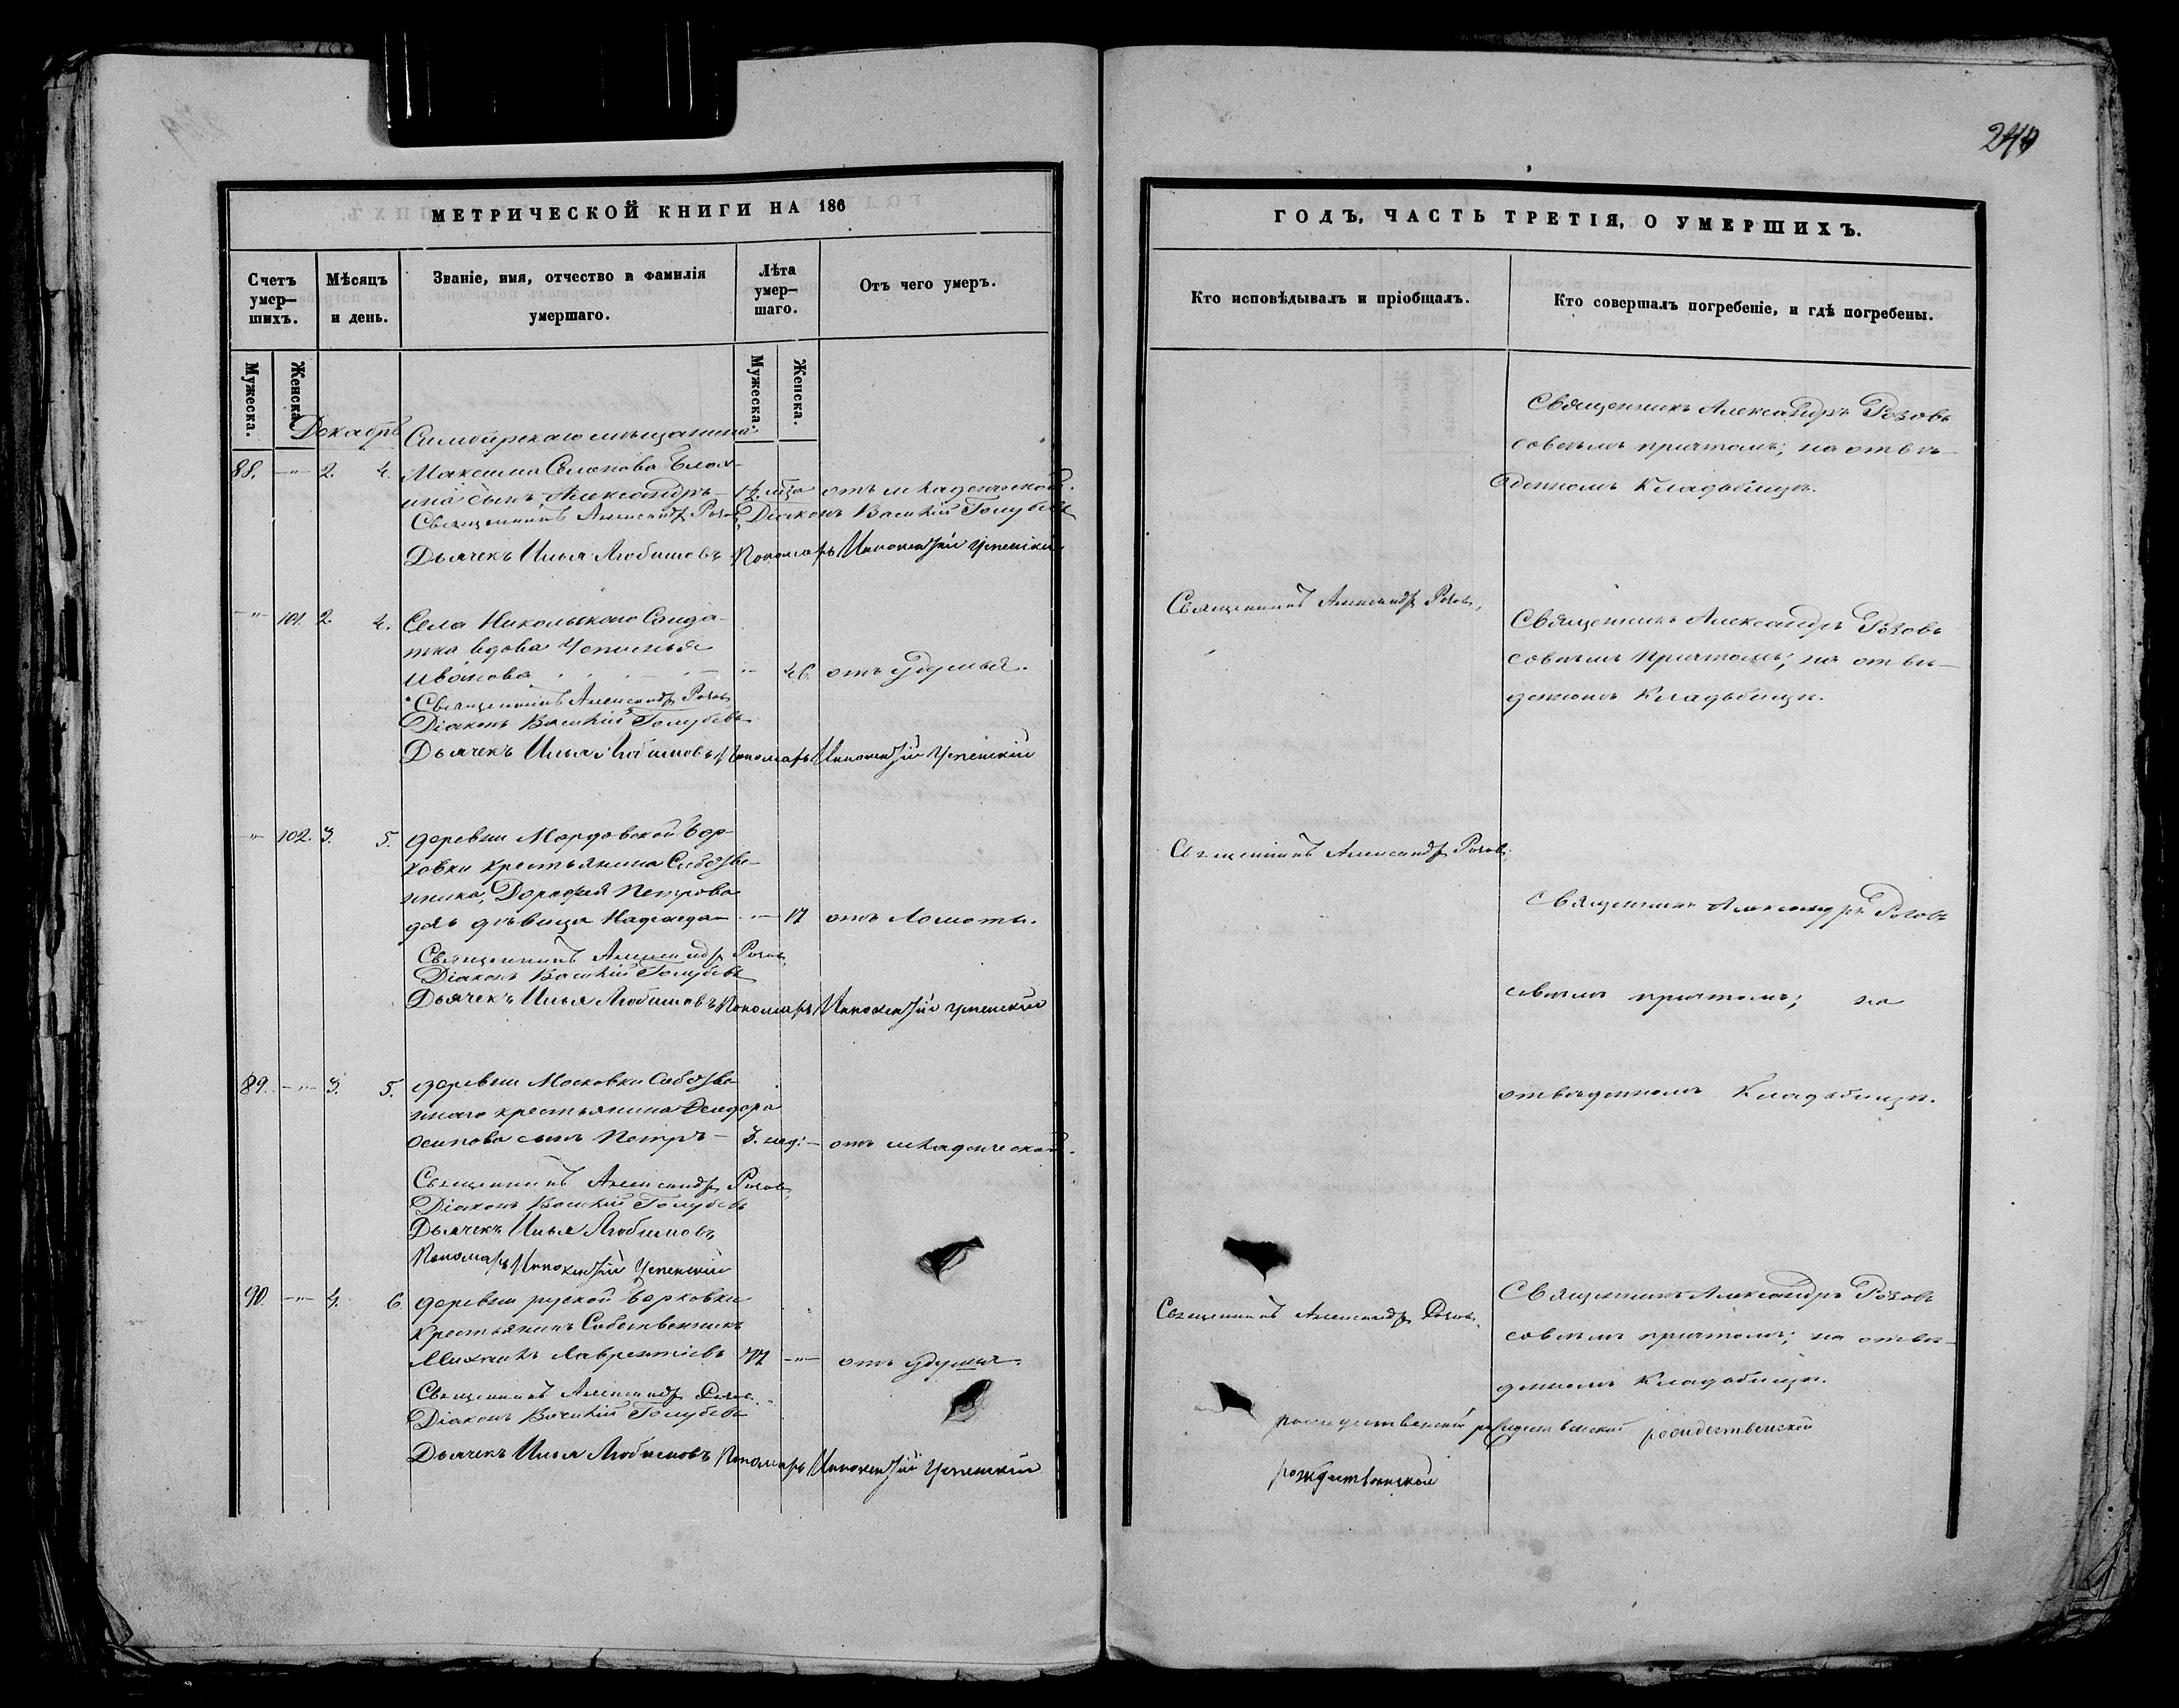 240
МЕТРИЧЕСКОЙ КНИГИ НА 186
Счетъ умер-шихъ.
Мѣсяцъ и день.
Званіе, имя, отчество и фамилія умершаго.
Лѣта умер-шаго.
Отъ чего умеръ.
Мужеска.
Женска.
Мужеска.
Женска.
Декабрь
Симбирскаго мещанина
88. -"- 2. 4. Максима Семенова
сынъ Александръ - 1½ мца отъ младенческой.
Священникъ Александръ Розовъ Діаконъ Василій Голубевъ
Дьячекъ Илья Любимовъ Пономарь Иннокентій Успенскій
-"- 101. 2. 4. Села Никольскаго Солдат-
тка вдова
Иванова -"- 46. отъ удушья.
Священникъ Александръ Розовъ
Діаконъ Василій Голубевъ
Дьячекъ Илья Любимовъ Пономарь Иннокентій Успенскій
-"- 102. 3. 5. деревни Мордовской Бор-
ковки крестьянина Собстве-
нника, Дорофея Петрова
дѣвица Надежда -"- 17 отъ ломоты.
Священникъ Александръ Розовъ
Діаконъ Василій Голубевъ
Дьячекъ Илья Любимовъ Пономарь Иннокентій Успенскій
89. -"- 3. 5. деревни Московки Собстве-
ннаго крестьянина Феодора
Осипова сынъ Петръ - 3. нед: - отъ младенческой.
Священникъ Александръ Розовъ
Діаконъ Василій Голубевъ
Дьячекъ Илья Любимовъ
Пономарь Иннокентій Успенскій
90. -"- 4. 6. деревни руской Борковки
Крестьянинъ Собственникъ
Михаилъ Лаврентіевъ 77 -"- отъ удушья.
Священникъ Александръ Розовъ
Діаконъ Василій Голубевъ
Дьячекъ Илья Любимовъ Пономарь Иннокентій Успенскій
ГОДЪ, ЧАСТЬ ТРЕТІЯ, О УМЕРШИХЪ.
Кто исповѣдывалъ и пріобщалъ.
Кто совершалъ погребеніе, и гдѣ погребены.
Священникъ Александръ Розовъ
совсѣмъ причтомъ; на отвѣ-
денномъ Кладбищѣ.
Священникъ Александръ Розовъ
Священникъ Александръ Розовъ
совсѣмъ причтомъ; на отвѣ-
денномъ Кладьбищѣ.
Священникъ Александръ Розовъ
Священникъ Александръ Розовъ
совсѣмъ причтомъ; на
отвѣденномъ Кладьбищѣ.
Священникъ Александръ Розовъ
Священникъ Александръ Розовъ
совсѣмъ причтомъ; на отвѣ-
денномъ Кладбищѣ.
рождественской
рождественской